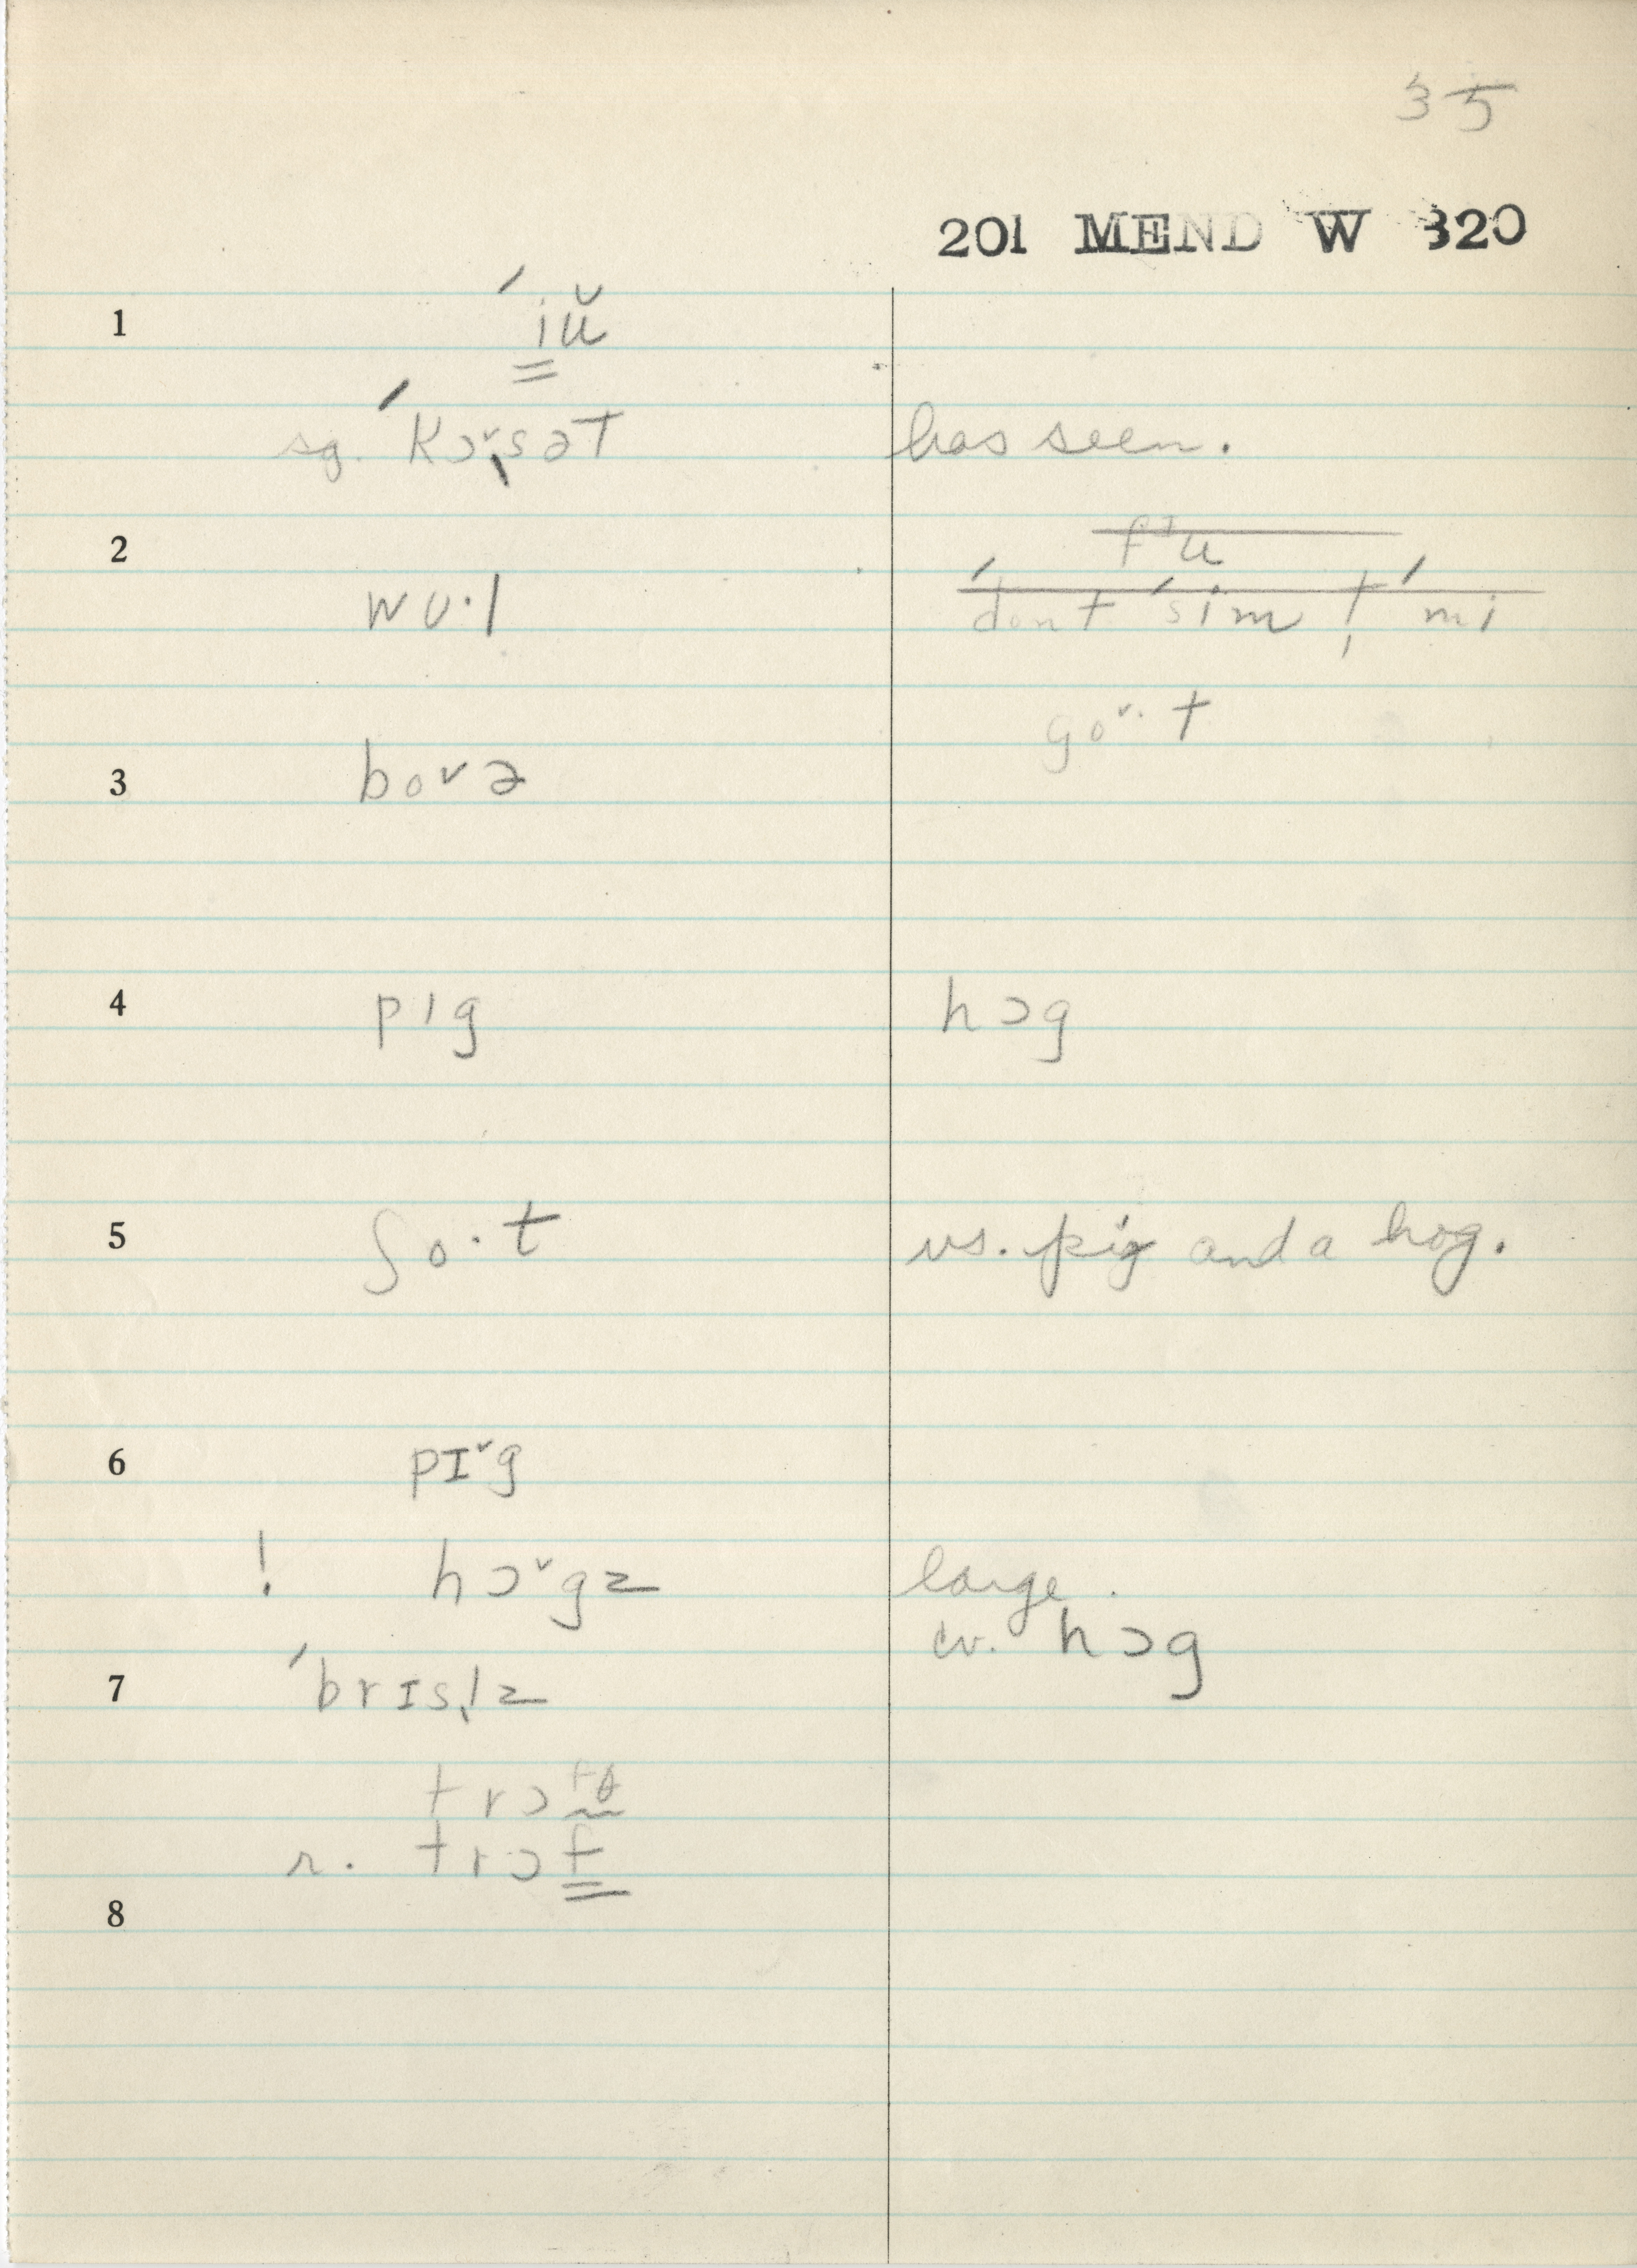 35
201 MEND W 320
1 ´iŭ
sg. ´KɔˇsəT has seen.
2
wʊ·l ´dont ´sim t ´mi
goˇ· t
3 boˇə
4 pɪg hɔg
5 ʃo·t vs. pig and a hog.
6 pɪˇg
! hɔˇgz large.
cv. hɔg
7 ´brɪsl̩z
trɔfθ
r. trɔf
8